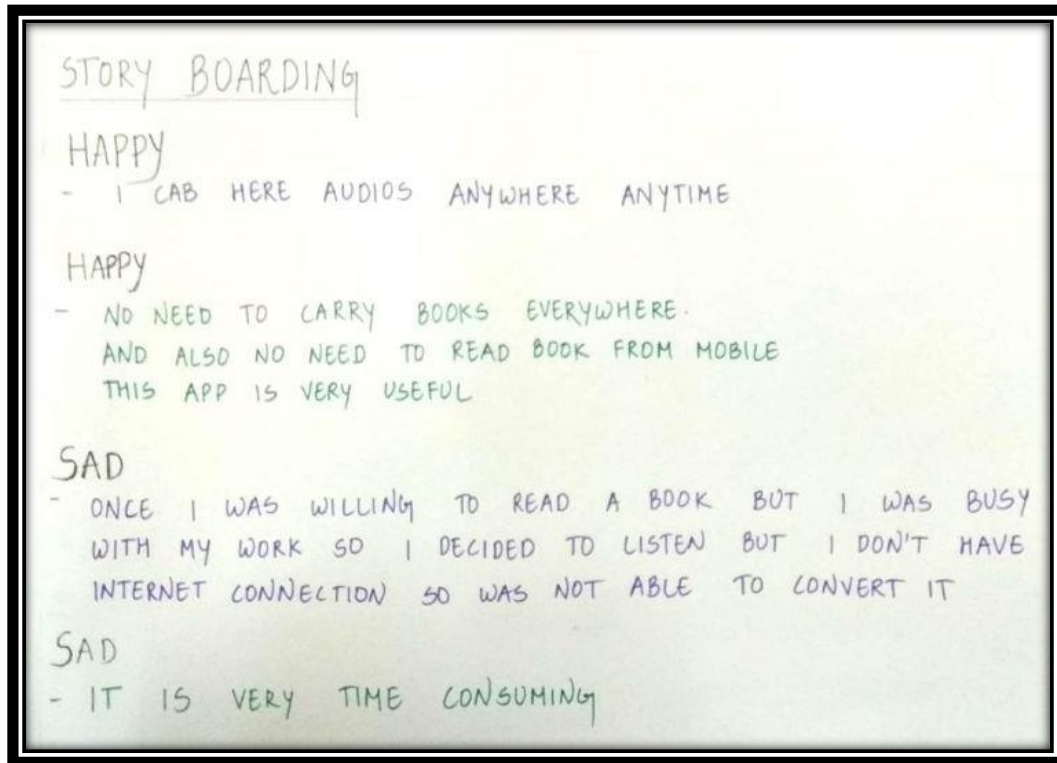 STORY BOARDING
HAPPY
- I CAB HERE AUDIOS ANYWHERE ANYTIME
HAPPY
- NO NEED TO CARRY BOOKS EVERYWHERE.
AND ALSO NO NEED TO READ BOOK FROM MOBILE
THIS APP IS VERY USEFUL
SAD
- ONCE I WAS WILLING TO READ A BOOK BUT I WAS BUSY
WITH MY WORK SO I DECIDED TO LISTEN BUT I DON'T HAVE
INTERNET CONNECTION SO WAS NOT ABLE TO CONVERT IT
SAD
- IT IS VERY TIME CONSUMING